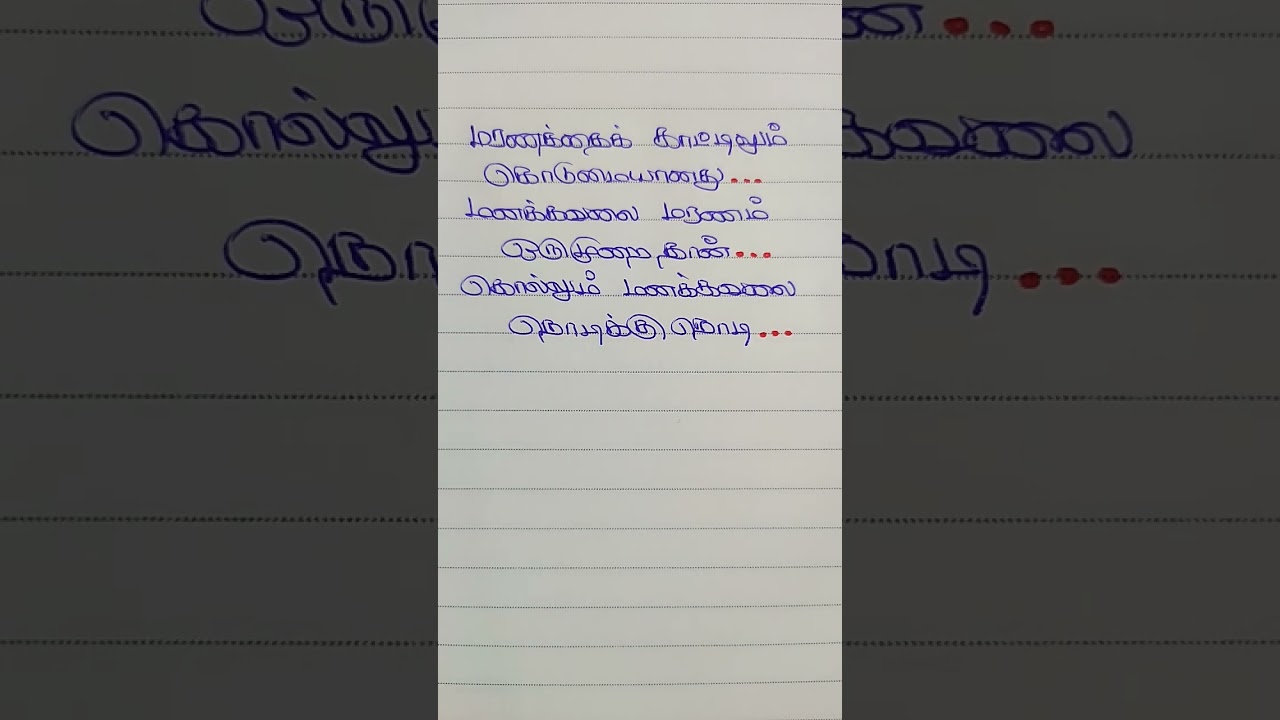 மரணத்தைக் காட்டிலும்
கொடுமையானது...
மனக்கவலை மரணம்
ஒருமுறை தான்...
கொல்லும் மனக்கவலை
நொடிக்கு நொடி...